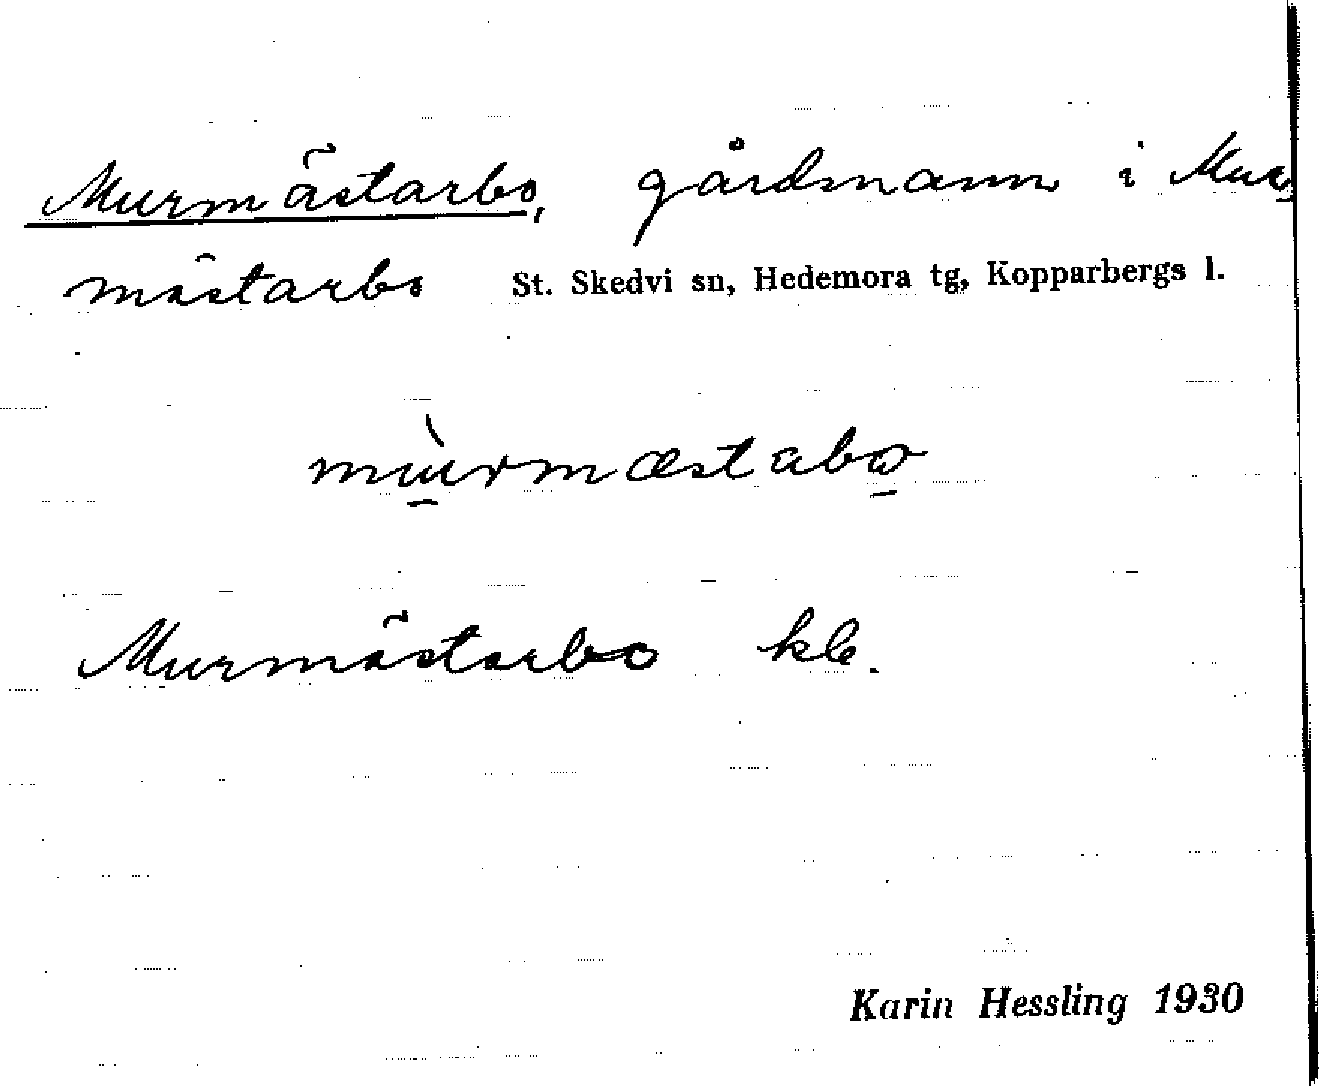 Murmästarbo, gårdnamn i Mur,
mästarbo St. Skedvi sn, Hedemora tg, Kopparbergs l.
mùrmæstabω
Murmästarbo kb.
Karin Hessling 1930